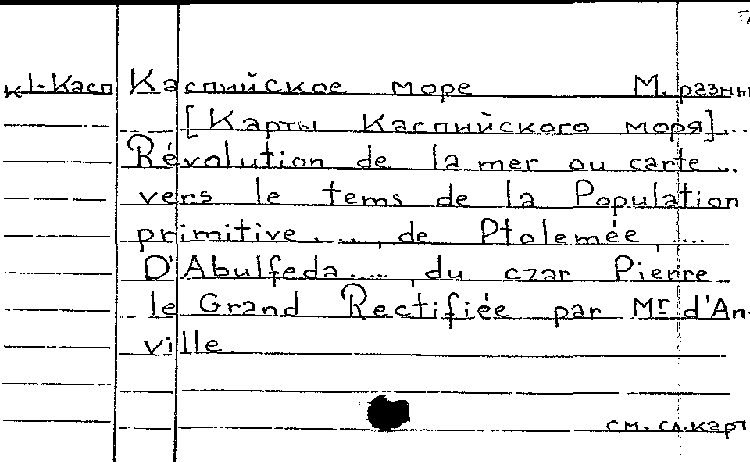 к1-Касп Каспийское море М. разны
[Карты Каспийского моря]...
Révolution de la mer ou carte...
vers le tems de la Population
primitive...., de Ptolemée, ....
D'Abulfeda....., du czar Pierre
le Grand Rectifiée par Mr d'An-
ville
см. сл. карт